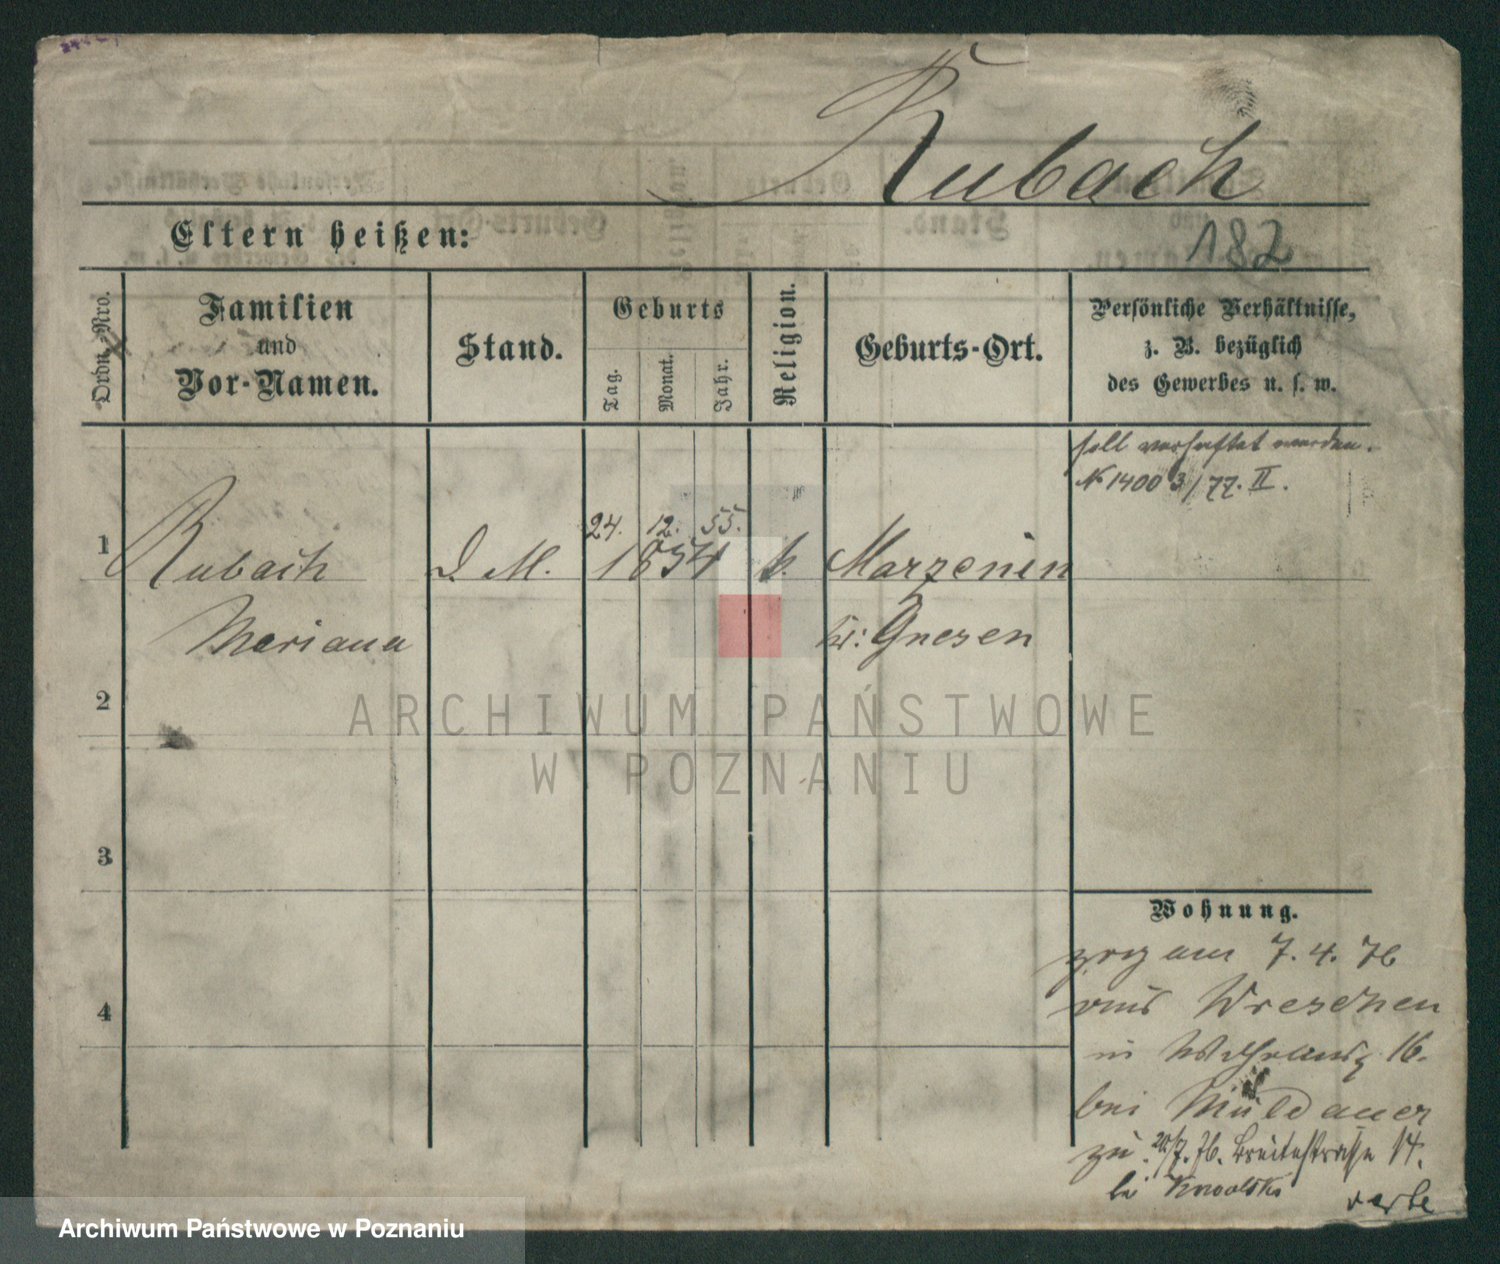 Rubach
Eltern heißen:
182
Ordn. Nro.
Familien
und
Vor-Namen.
Stand.
Geburts
Tag.
Monat.
Jahr.
Religion.
Geburts-Ort.
Persönliche Verhältnisse,
z. B. bezüglich
des Gewerbes u. s. w.
soll verhaftet werden.
N 1400 3/77. II.
24. 12. 55.
1 Rubach D. M. 1854 k. Marzenin
Mariana Kr: Gnesen
2
3
4
Wohnung.
zog am 7. 4. 76
aus Wreschen
in Wilhelmspl 16.
bei Muldauer
zu 20/7. 76. Breitestrasse 14.
bei Kowalski
verte
ARCHIWUM PAŃSTWOWE
W POZNANIU
Archiwum Państwowe w Poznaniu